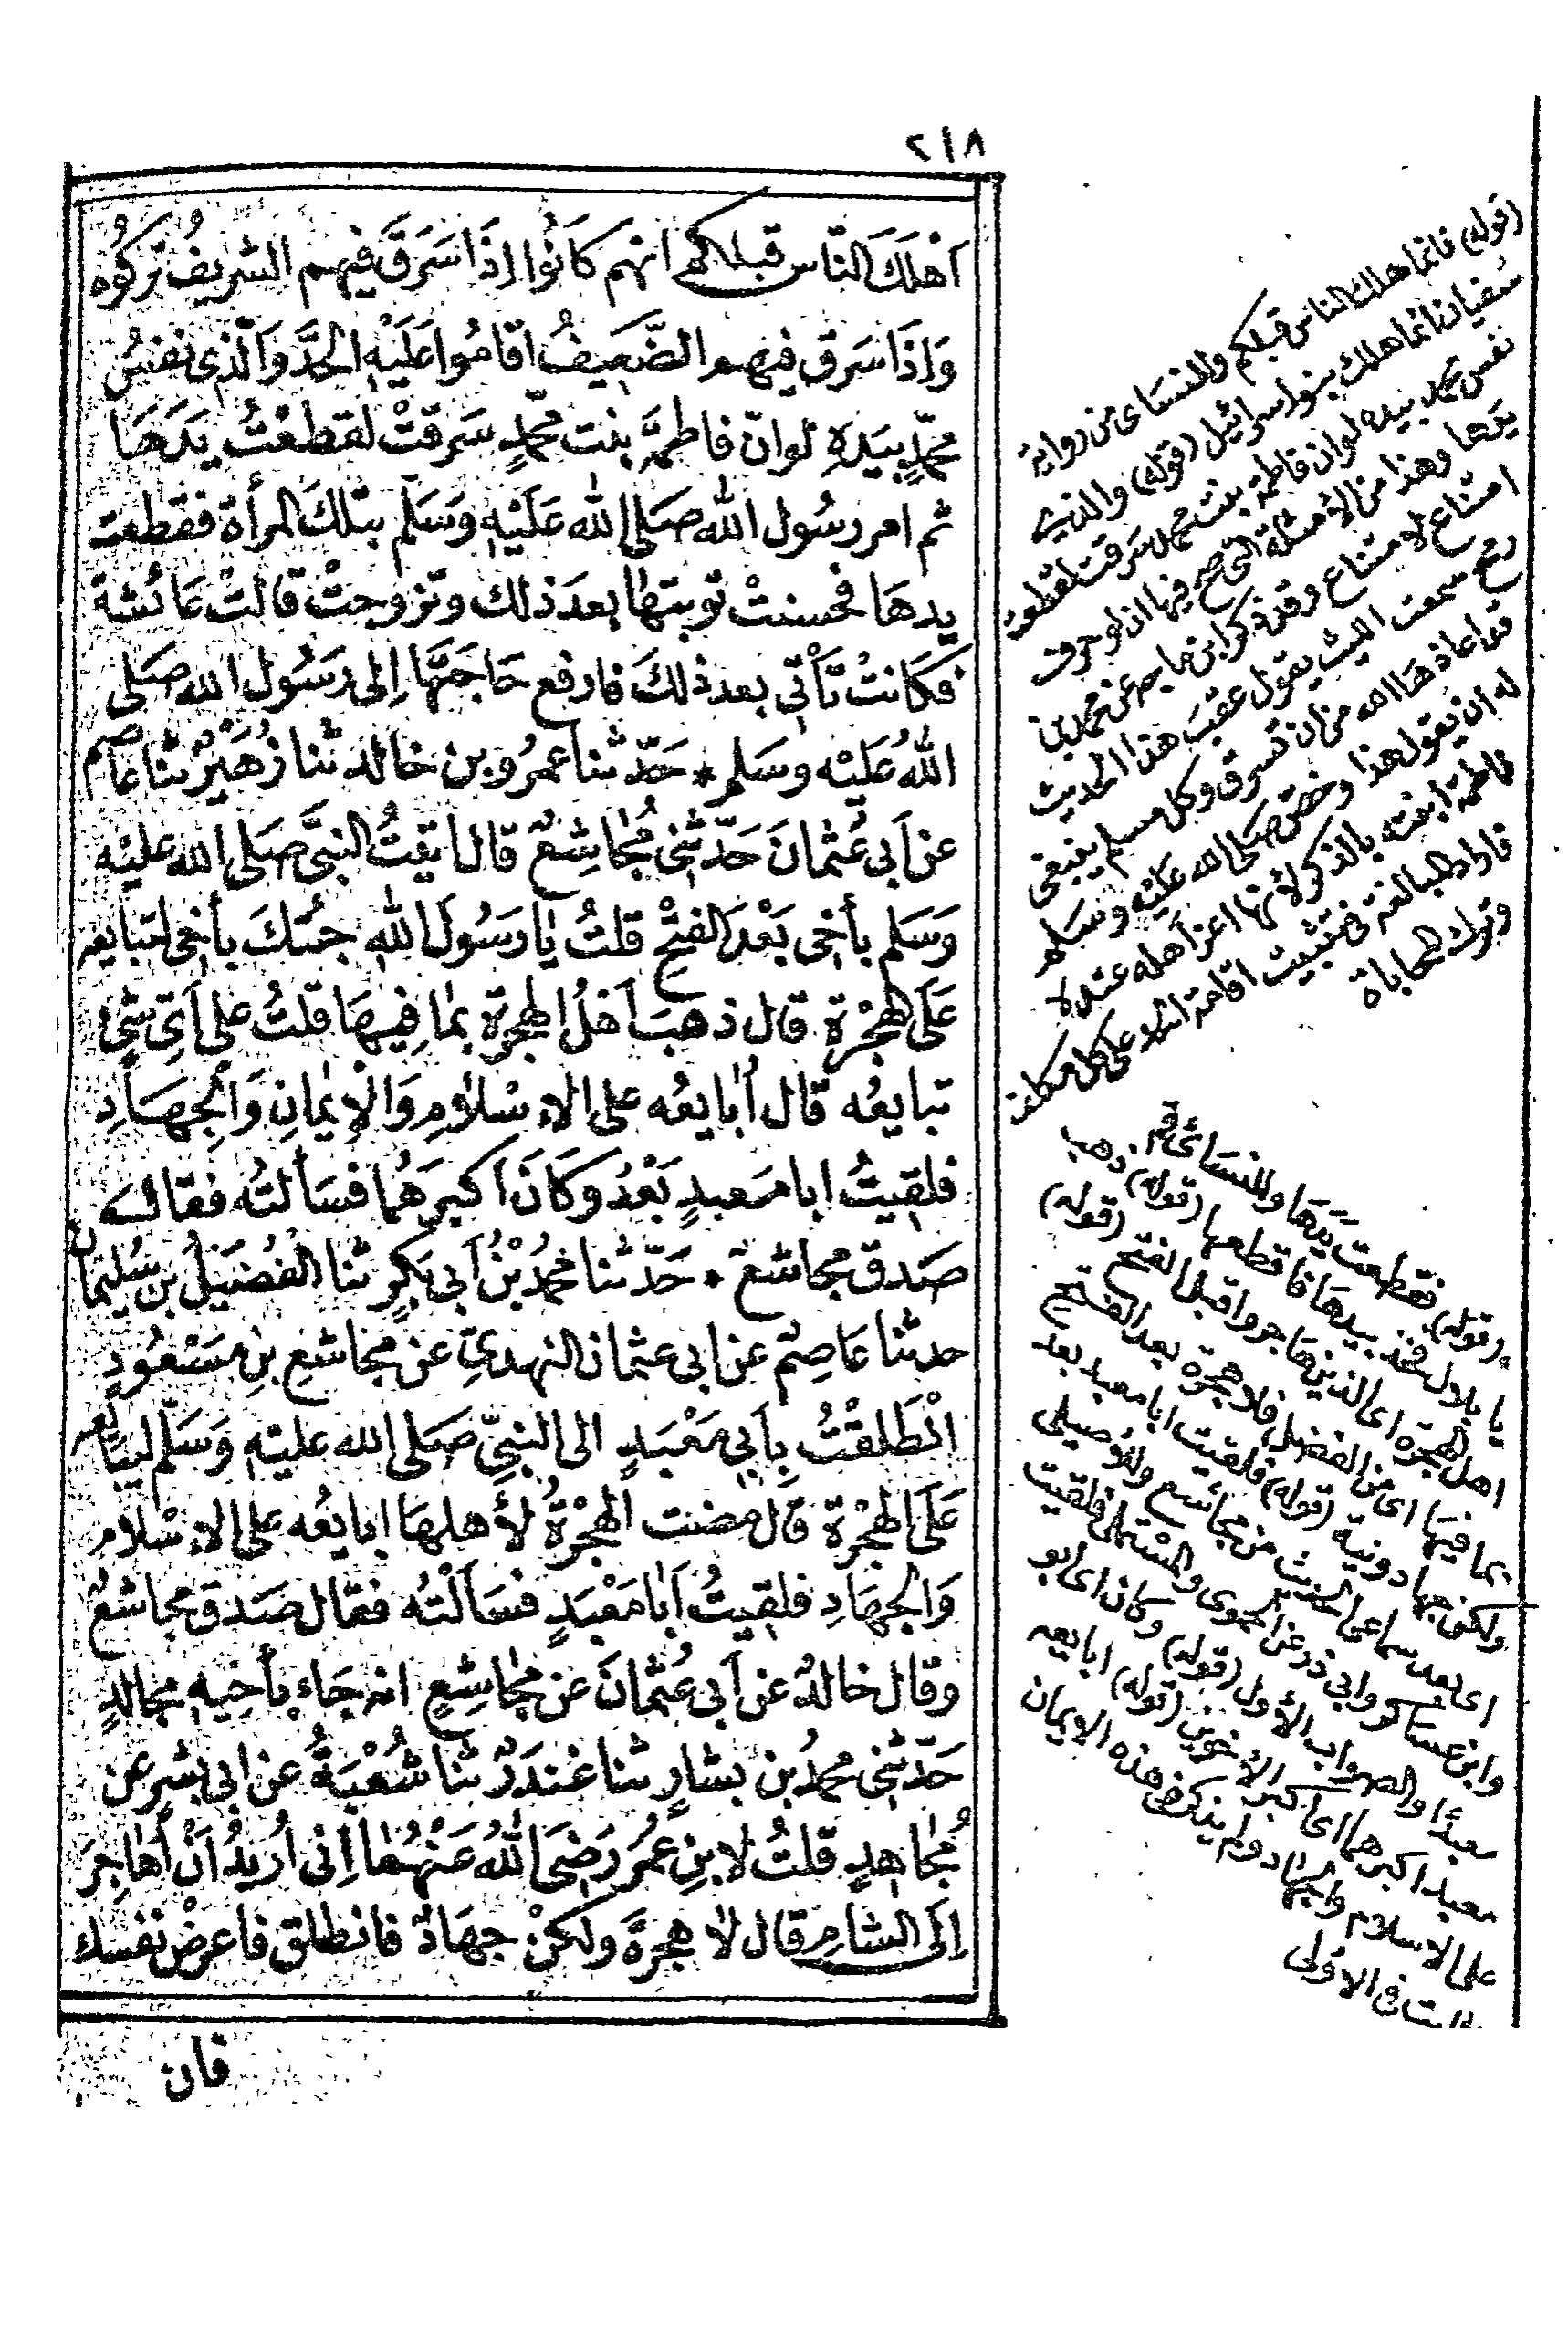 ٢١٨
اَهْلَكَ النَّاس قبلكم انهم كَانُوا اِذَا سَرَقَ فِيهم الشريفُ تركُوُه
وَاِذَا سَرَق فيهم الضَّعِيفُ اقامُوا عَلَيْهِ الحدَّ وَالَّذِى نفسُ
محمّدٍ بيَدِهِ لوانّ فاطمةَ بنت محمّدٍ سَرقتْ لقطعْتُ يدَهَا
ثم امر رسُول اللّٰه صَلى اللّٰه عَلَيْهِ وَسَلّم بتلكَ المرأة فقطعت
يدهَا فحسنتْ توبتهٰا بعدَ ذلك وتزوجتْ قالتْ عَائشة
فكَانتْ تَأتى بعد ذلكَ فارفع حَاجتَهَا اِلى رَسُول اللّه صَلى
اللّٰهُ عَلَيْه وسَلم * حَدّثنا عمرُو بن خالد ثنا زُهَيْرٌ ثنا عَاصم
عن اَبى عُثمانَ حَدّثنى مُجٰاشِعٌ قال اتيتُ النبىَّ صَلى اللّه عليْه
وَسَلم بأخى بَعْدَ الفتْحِ قلتُ يٰا رَسُولَ اللّٰهِ جئتكَ بأخى لتبايعه
عَلَى الهجْرَةِ قال ذهبَ اَهْلُ الهجرَة بمٰا فِيهَا قلتُ على اَىِّ شئ
تبايعُه قال اُبٰايعُه على الاِسْلٰامِ وَالاِيمٰانِ وَالجِهَادِ
فلقِيتُ ابا معبدٍ بَعْدُ وكَانَ اكبرَهُما فسَألتُه فقالـَ
صَدق مجاشعٌ * حَدّثنا محمدُ بْنُ اَبى بَكرٍ ثنا الفُضيْلُ بن سُليمان
حدثنا عَاصِمٌ عن ابى عثمان النهدىِّ عن مجاشعِ بنِ مسْعُودٍ
انْطَلقْتُ بِاَبى مَعْبَدٍ الى النبىِّ صَلى اللّه عليْهِ وَسَلّم ليبايعه
عَلَى الهجْرَة قال مضت الهجْرَةُ لأهلهَا ابايعُه على الاِسْلامِ
وَالجهَادِ فلقِيتُ اَبٰا مَعْبَدٍ فسَألْتُه فقال صَدق مجاشعٌ
وقال خالدٌ عن اَبى عُثمانَ عن مجٰاشِعٍ انه جَاء بأخيهِ مجالدٍ
حَدّثنى محمدُ بن بشارٍ ثنا غندَرٌ ثنا شُعْبَةُ عن ابى بشرٍ عن
مُجٰاهدٍ قلتُ لابنِ عُمرَ رَضىَ اللّٰهُ عَنْهُمٰا اِنى اُريدُ اَنْ اُهٰاجِرَ
اِلى الشامِ قال لا هجرَةَ ولكنْ جهَادٌ فانطلق فاعرضْ نفسك
فان
(قوله) فانما هلك الناس قبلكم وللنسَاى من رواية
سُفيان انما هلك بنوا سرائيل (قوله) والذى
نفس محمد بيده لوان فاطمة بنت محمد سَرقت لقطعت
يدها وهذا من الأمثلة التى صح فيها ان لو حرف
امتناع لامتناع وقد ذكر ابن ماجه عن محمد بن
رمح سمعت الليث يقول عقبَ هذا الحديث
قد اعاذها الله من ان تسرق وكل مسلم ينبغى
له ان يقول هذا وخصّ صَلى الله عليْه وسَلم
فاطمة ابنته بالذكر لأنها اعز اهله عنده
فاراد المبالغة فى تثبيت اقامة الحد على كل مكلف
وترك المحاباة
(قوله) فقطعت يَدهَا وللنسَائى قم
يا بلال فخذ بيدهَا فاقطعها (قوله) ذهب
اهل الهجرة اى الذين هَاجروا قبل الفتح (قوله)
بما فيها اى من الفضل فلا هجرة بعد الفتح
ولكن جهاد ونية (قوله) فلقيت ابا معبد بعد
اى بعد سماعى الحديث من مجاشع وللأصيلى
وابن عساكر وابى ذر عن الحموى والمستملى فلقيت
معبدًا والصواب الأول (قوله) وكان اى ابو
معبد اكبرهما اى اكبر الأخوين (قوله) ابايعه
على الاسلام والجهاد ولم يذكر فى هذه الايمان
فى الاولى